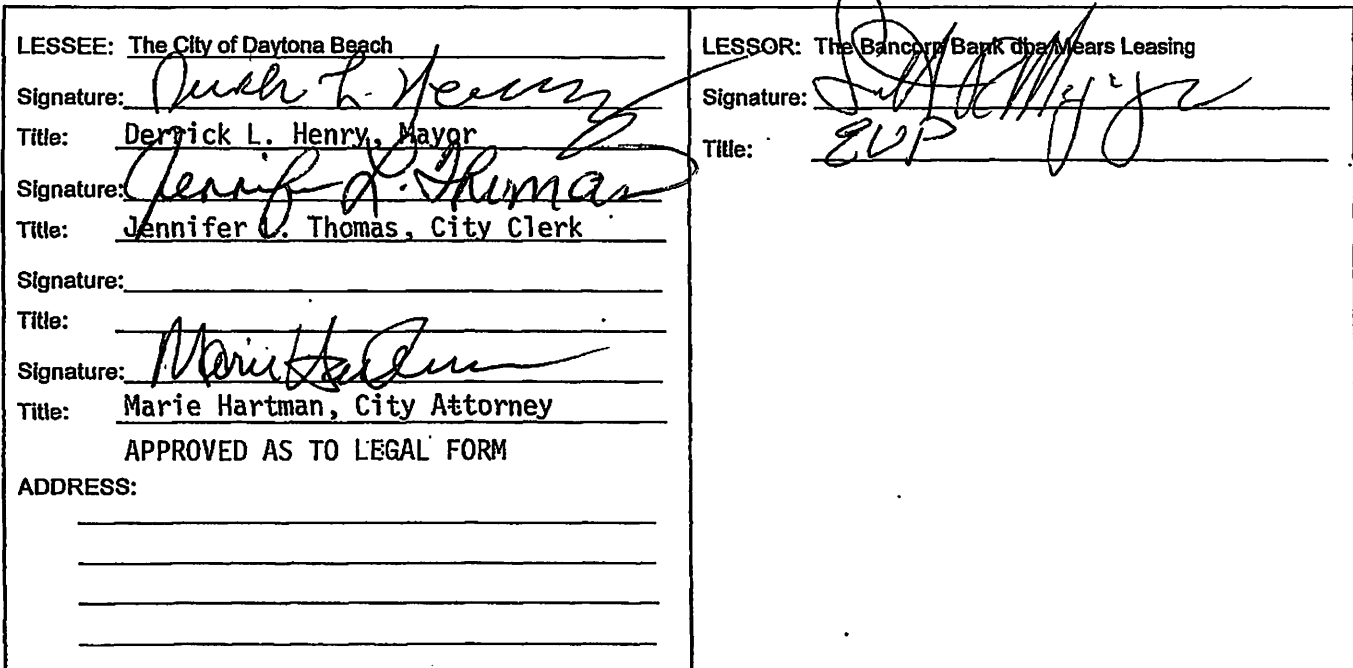 LESSEE: The City of Daytona Beach
Signature:
Title: Derrick L. Henry, Mayor
Signature: Jennifer L. Thomas
Title: Jennifer L. Thomas, City Clerk
Signature:
Title:
Signature: Marie Hartman
Title: Marie Hartman, City Attorney
APPROVED AS TO LEGAL FORM
ADDRESS:
LESSOR: The Bancorp Bank dba Mears Leasing
Signature:
Title: EVP